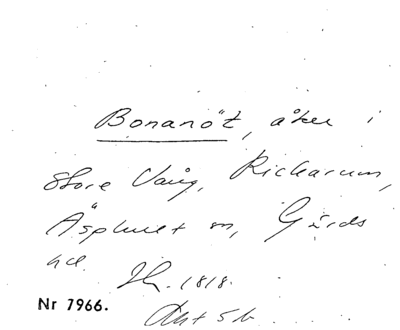 Bonanöt, åker i
Store Vång, Rickarum,
Äsphult sn, Gärds
hd. 1818.
Nr 7966. Akt 5b